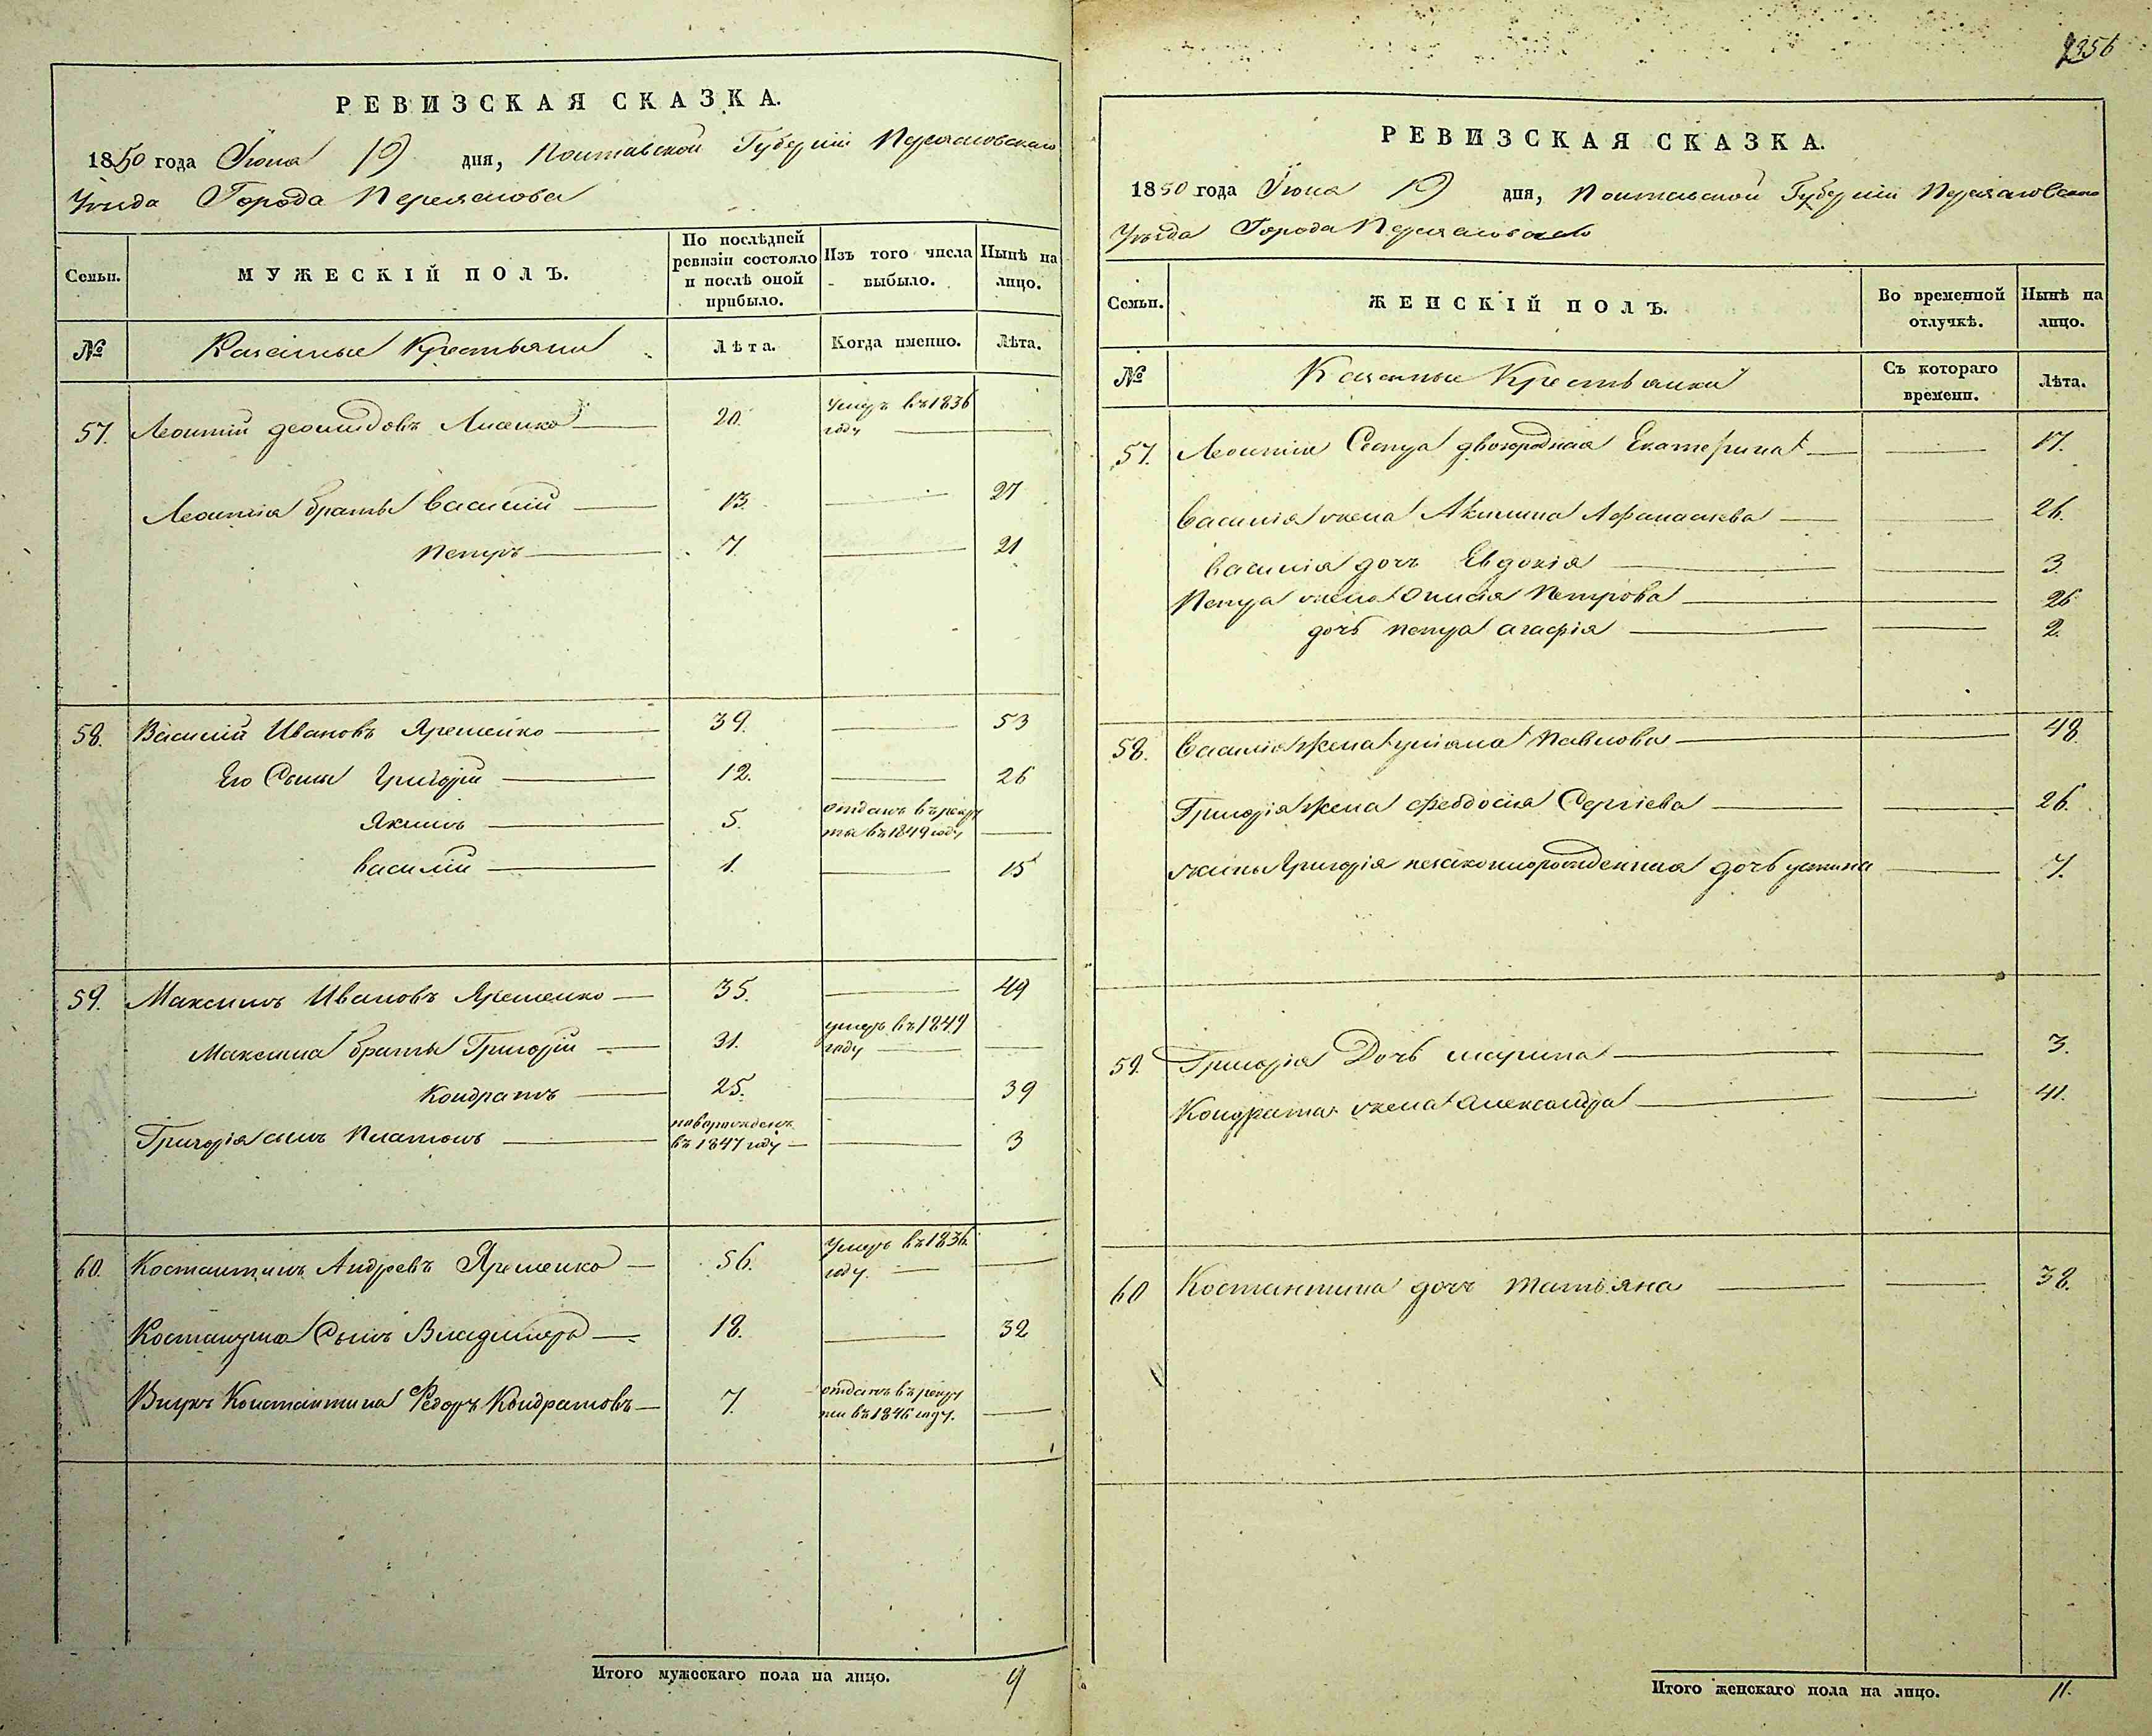 РЕВИЗСКАЯ СКАЗКА.
1850 года Іюня 19 дня, Полтавской Губерніи Переяславскаго
Уѣзда Города Переяслова
Семьи.
МУЖЕСКІЙ ПОЛЪ.
По послѣдней ревизіи состояло и послѣ оной прибыло.
Изъ того числа выбыло.
Нынѣ на лицо.
№
Казенные Крестьяне
Лѣта.
Когда именно.
Лѣта.
57. Леонтій Леонидовъ Лисенко 20. Умеръ въ 1836 году
Леонтія братья Василій 13. 27
Петръ 7. 21
58. Василій Ивановъ Яременко 39. 53
Его Сыны Григорій 12. 26
Якимъ 5. отданъ въ рекрута въ 1849 году
Василій 1. 15
59. Максимъ Ивановъ Яременко 35. 49
Максима братья Григорій 31. умеръ въ 1849 году
Кондратъ 25. 39
Григорія сынъ Платонъ новорожденъ въ 1847 году 3
60. Костантинъ Андревъ Яременко 56. Умеръ въ 1836 году.
Костантина Сынъ Владимеръ 18. 32
Внукъ Константина Федоръ Кондратовъ 7. отданъ въ рекруты въ 1846 году.
Итого мужескаго пола на лицо. 9
356
РЕВИЗСКАЯ СКАЗКА.
1850 года Іюня 19 дня, Полтавской Губерніи Переяславскаго
Уѣзда Города Переяслова
Семьи.
ЖЕНСКІЙ ПОЛЪ.
Во временной отлучкѣ.
Нынѣ на лицо.
№
Казенные Крестьянки
Съ котораго времени.
Лѣта.
57. Леонтія Сестра двоюродная Екатерина 17.
Василія жена Акилина Афанасіева 26.
Василія дочъ Евдокія 3.
Петра жена Онисія Петрова 26
дочь Петра агафія 2.
58. Василія жена уліяна Павлова 48.
Григорія жена Феодосія Сергіева 26.
жены Григорія незаконнорожденная дочь устина 7.
59. Григорія Дочь марина 3.
Кондрата жена александра 41.
60 Костантина дочъ татьяна 38.
Итого женскаго пола на лицо. 11.